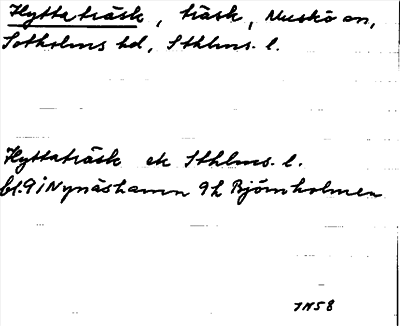 Hyttaträsk, träsk, Muskö sn,
Sotholms hd, Sthlms. l.
Hyttaträsk ek Sthlms. l.
bl. 9 i Nynäshamn 9h Björnholmen
JN58